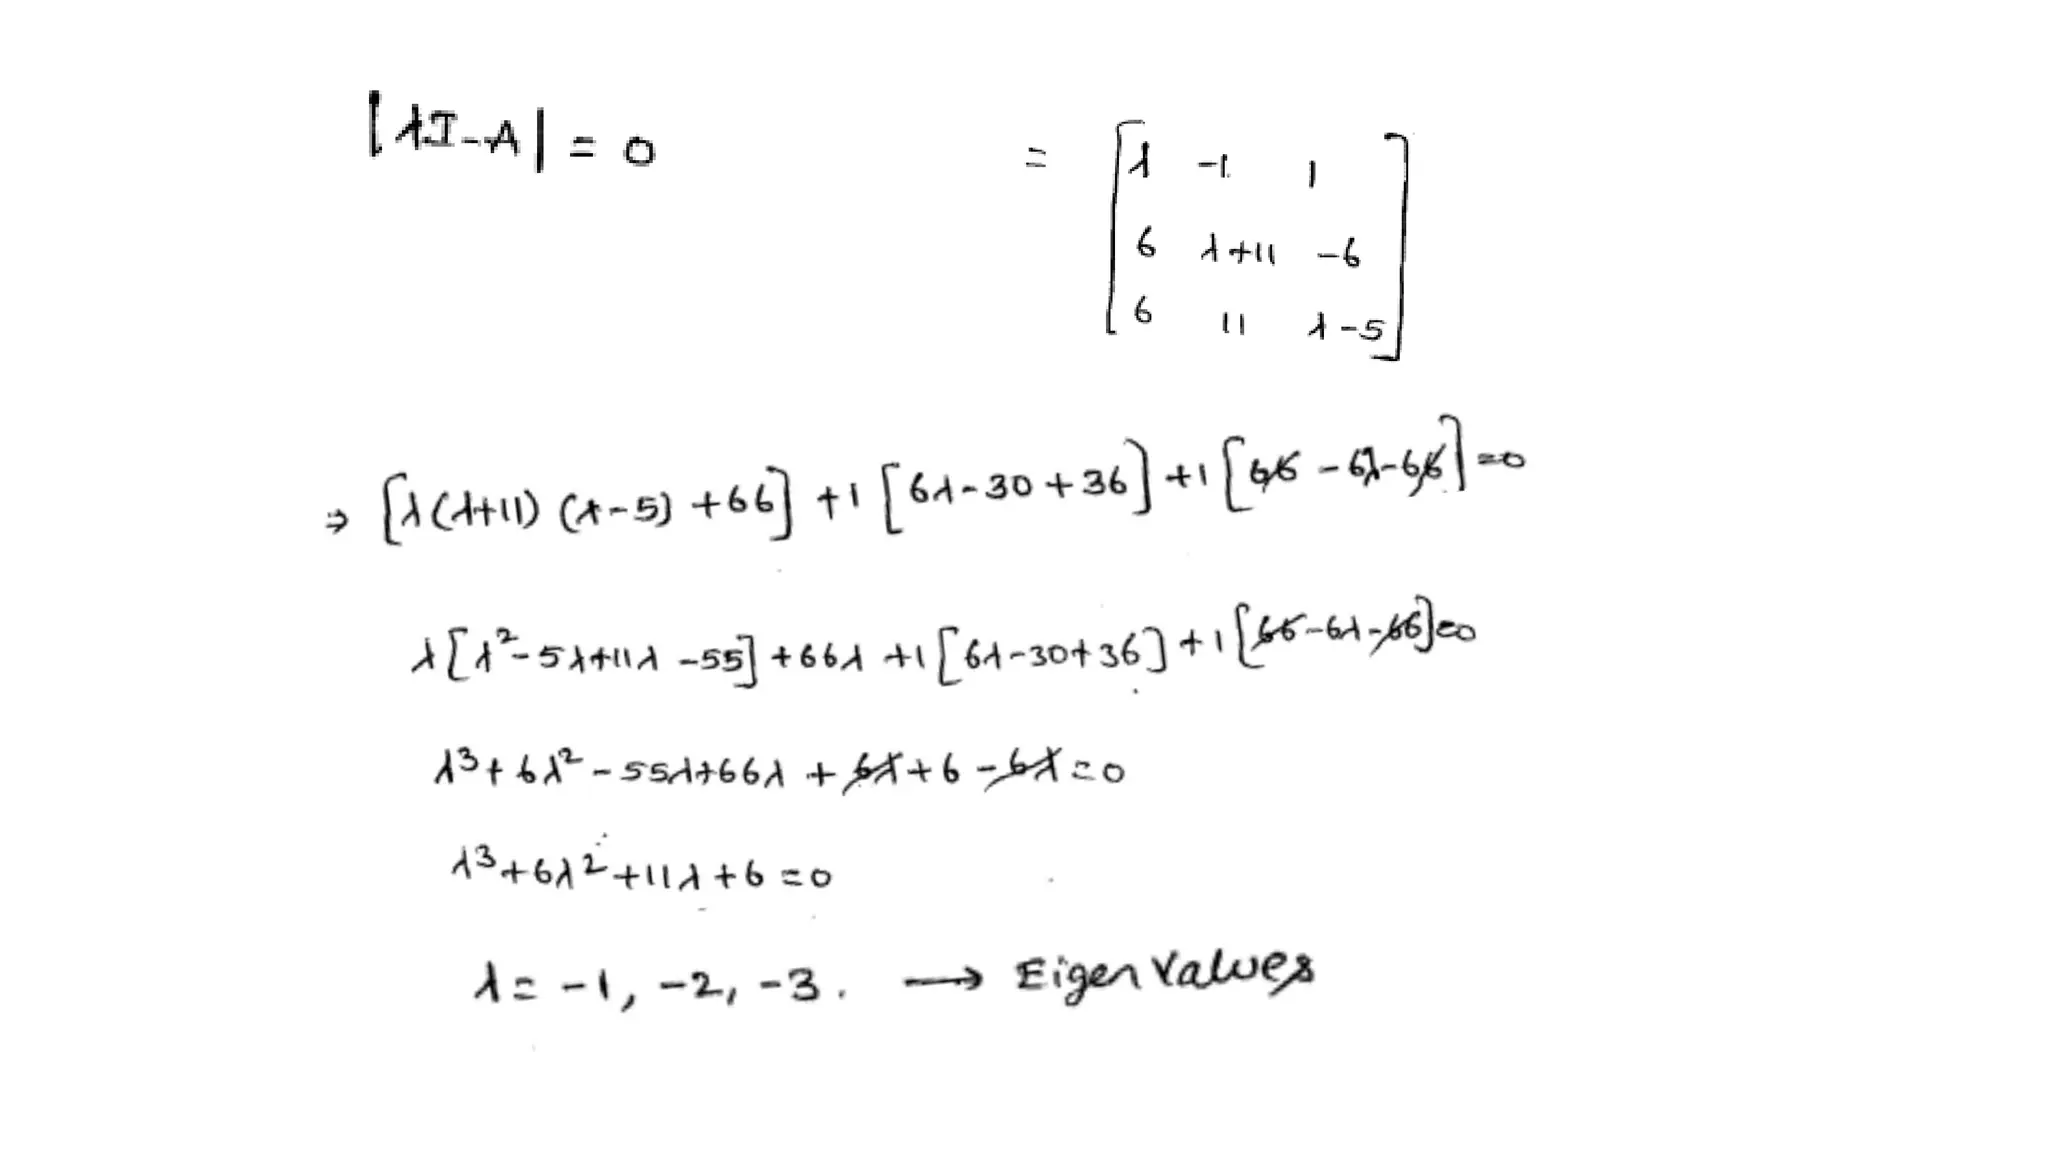 |λI-A| = 0
= [λ -1 1
6 λ+11 -6
6 11 λ-5]
⇒ [λ(λ+11) (λ-5) +66] +1 [6λ-30+36] +1 [66 - 6λ-66] =0
λ[λ²-5λ+11λ -55] +66λ +1[6λ-30+36] +1[66-6λ-66]=0
λ³+6λ²-55λ+66λ + 6λ+6 -6λ =0
λ³+6λ²+11λ+6 =0
λ= -1, -2, -3. → Eigen Values